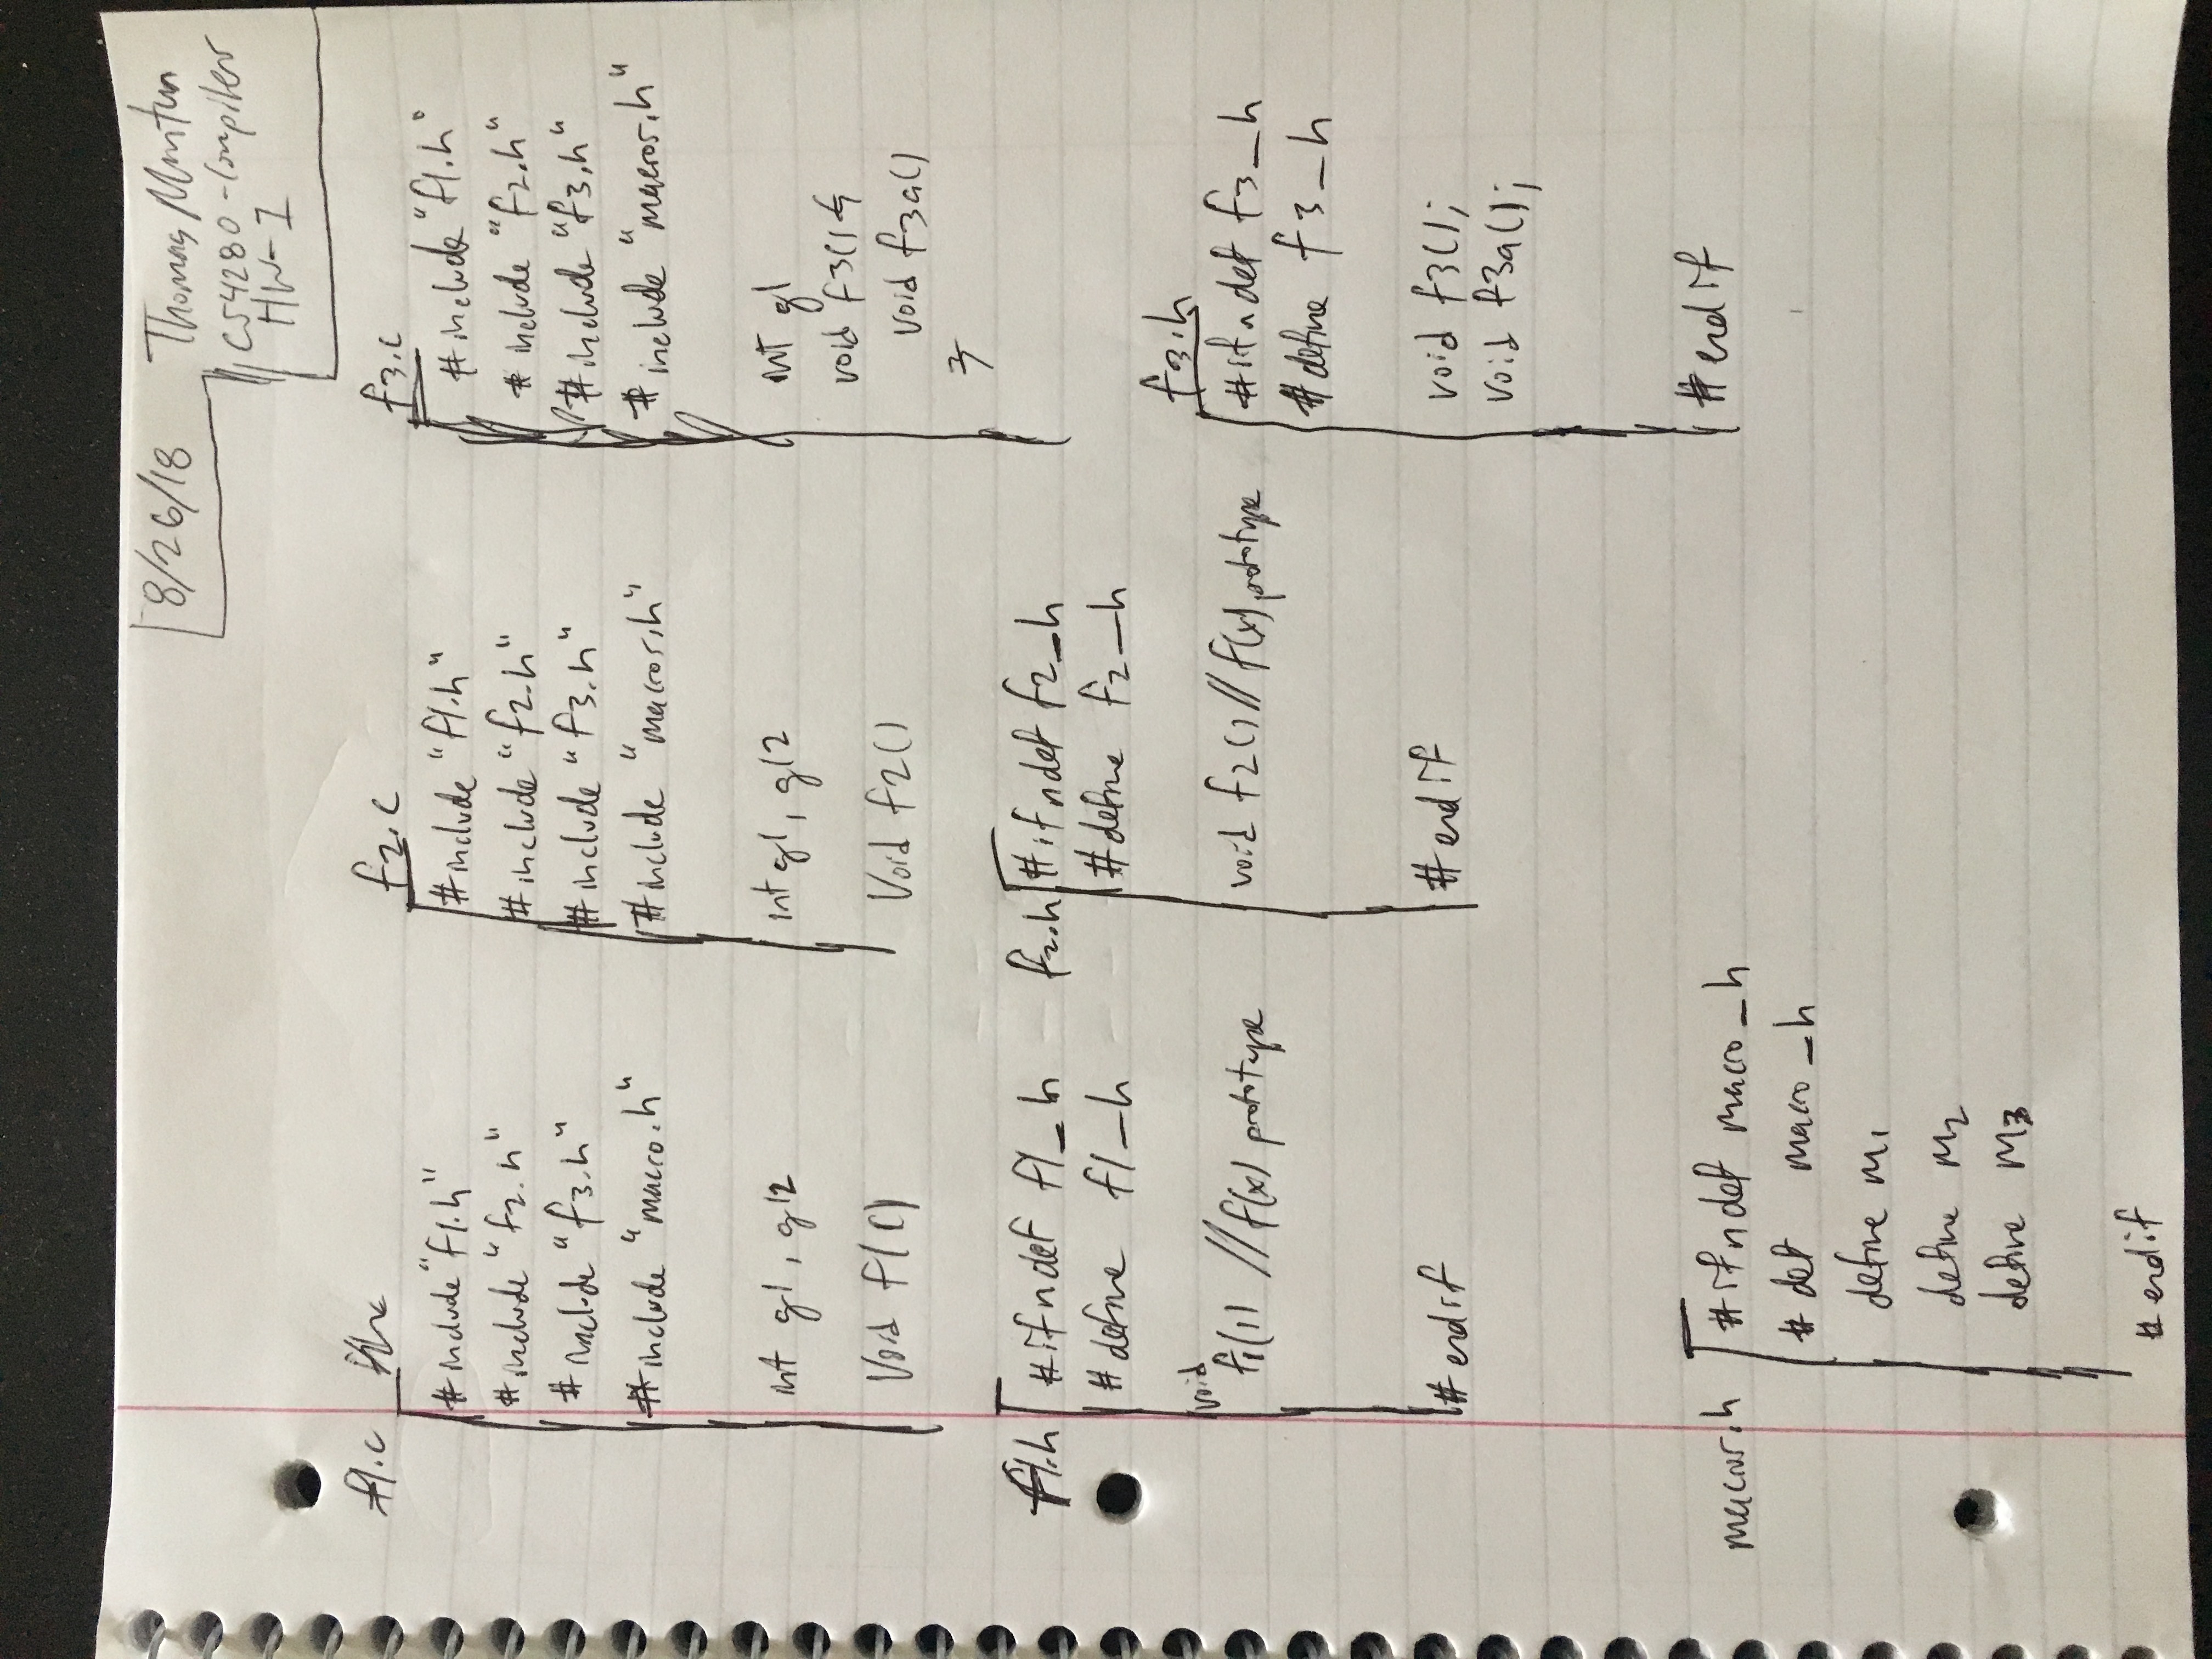 8/26/18
Thomas
CS4280 - Compilers
HW-1
f1.c
#include "f1.h"
#include "f2.h"
#include "f3.h"
#include "macro.h"
int g1, g12
Void f1()
f2.c
#include "f1.h"
#include "f2.h"
#include "f3.h"
#include "macros.h"
int g1, g12
Void f2()
f3.c
#include "f1.h"
#include "f2.h"
#include "f3.h"
#include "macros.h"
int g1
void f3(){
void f3a()
}
f1.h
#ifndef f1_h
#define f1_h
void
f1() //f(x) prototype
#endif
f2.h
#ifndef f2_h
#define f2_h
void f2() //f(x) prototype
#endif
f3.h
#ifndef f3_h
#define f3_h
void f3();
void f3a();
#endif
macros.h
#ifndef macro_h
#def macro_h
define m1
define m2
define m3
#endif